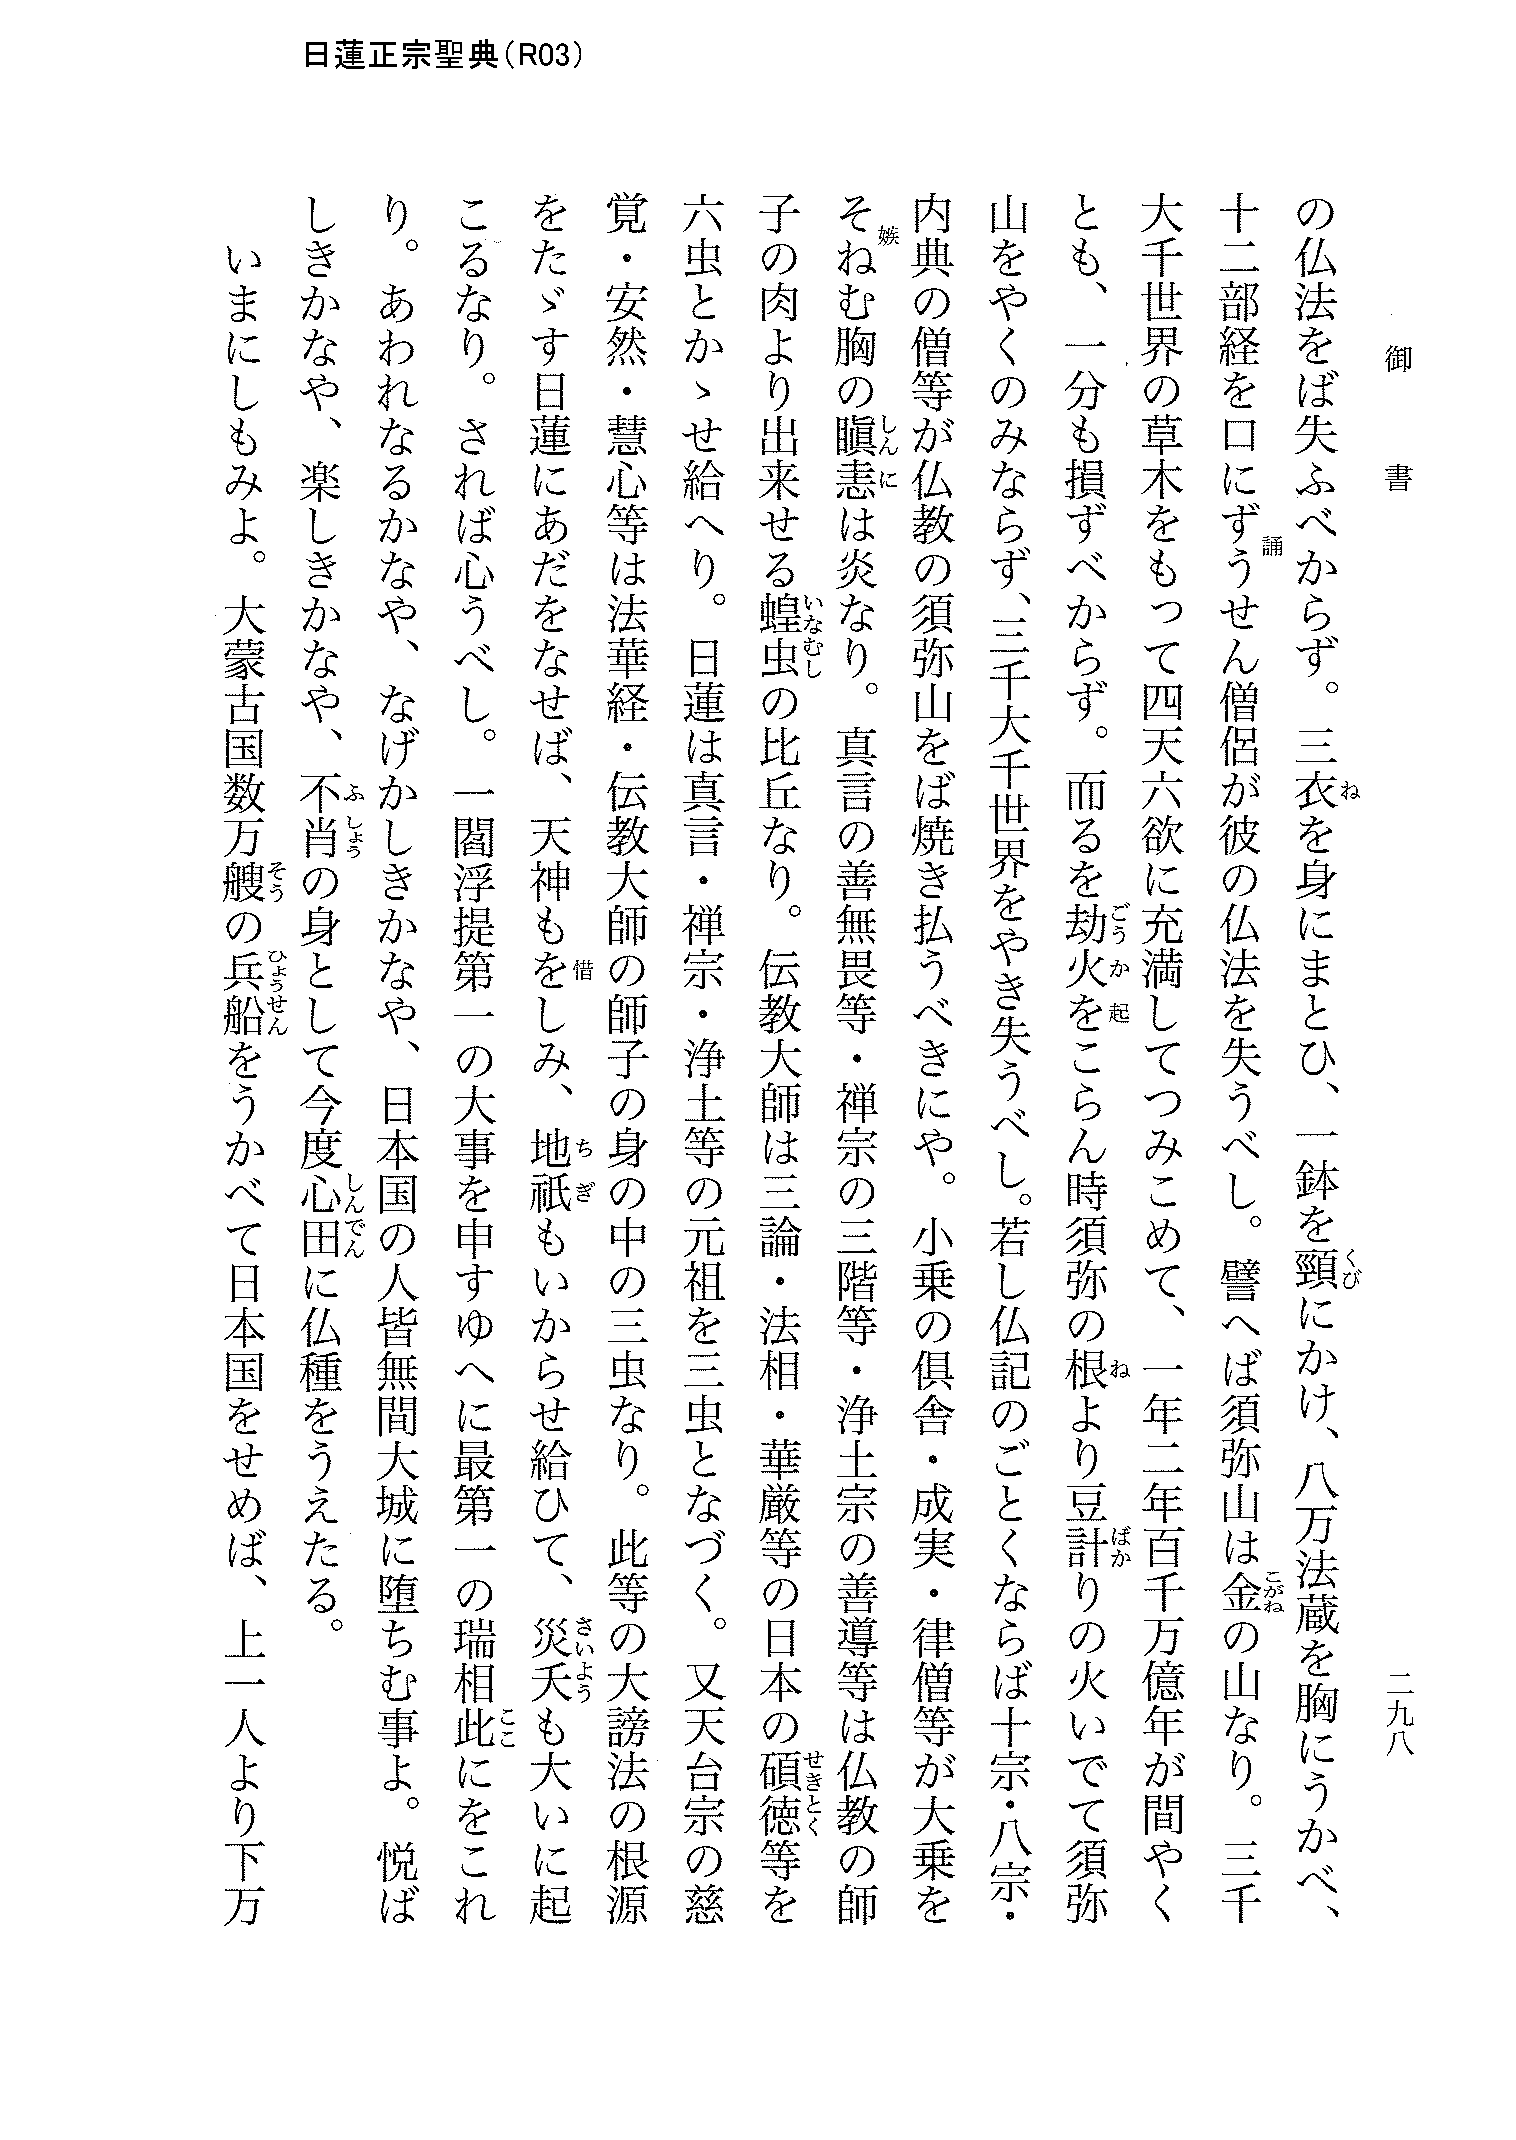 日蓮正宗聖典（R03）
御書
二九八
の仏法をば失ふべからず。三衣を身にまとひ、一鉢を頸にかけ、八万法蔵を胸にうかべ、
十二部経を口にずうせん僧侶が彼の仏法を失うべし。譬へば須弥山は金の山なり。三千
大千世界の草木をもって四天六欲に充満してつみこめて、一年二年百千万億年が間やく
とも、一分も損ずべからず。而るを劫火をこらん時須弥の根より豆計りの火いでて須弥
山をやくのみならず、三千大千世界をやき失うべし。若し仏記のごとくならば十宗・八宗・
内典の僧等が仏教の須弥山をば焼き払うべきにや。小乗の倶舎・成実・律僧等が大乗を
そねむ胸の瞋恚は炎なり。真言の善無畏等・禅宗の三階等・浄土宗の善導等は仏教の師
子の肉より出来せる蝗虫の比丘なり。伝教大師は三論・法相・華厳等の日本の碩徳等を
六虫とかゝせ給へり。日蓮は真言・禅宗・浄土等の元祖を三虫となづく。又天台宗の慈
覚・安然・慧心等は法華経・伝教大師の師子の身の中の三虫なり。此等の大謗法の根源
をたゞす日蓮にあだをなせば、天神もをしみ、地祇もいからせ給ひて、災夭も大いに起
こるなり。されば心うべし。一閻浮提第一の大事を申すゆへに最第一の瑞相此にをこれ
り。あわれなるかなや、なげかしきかなや、日本国の人皆無間大城に堕ちむ事よ。悦ば
しきかなや、楽しきかなや、不肖の身として今度心田に仏種をうえたる。
いまにしもみよ。大蒙古国数万艘の兵船をうかべて日本国をせめば、上一人より下万